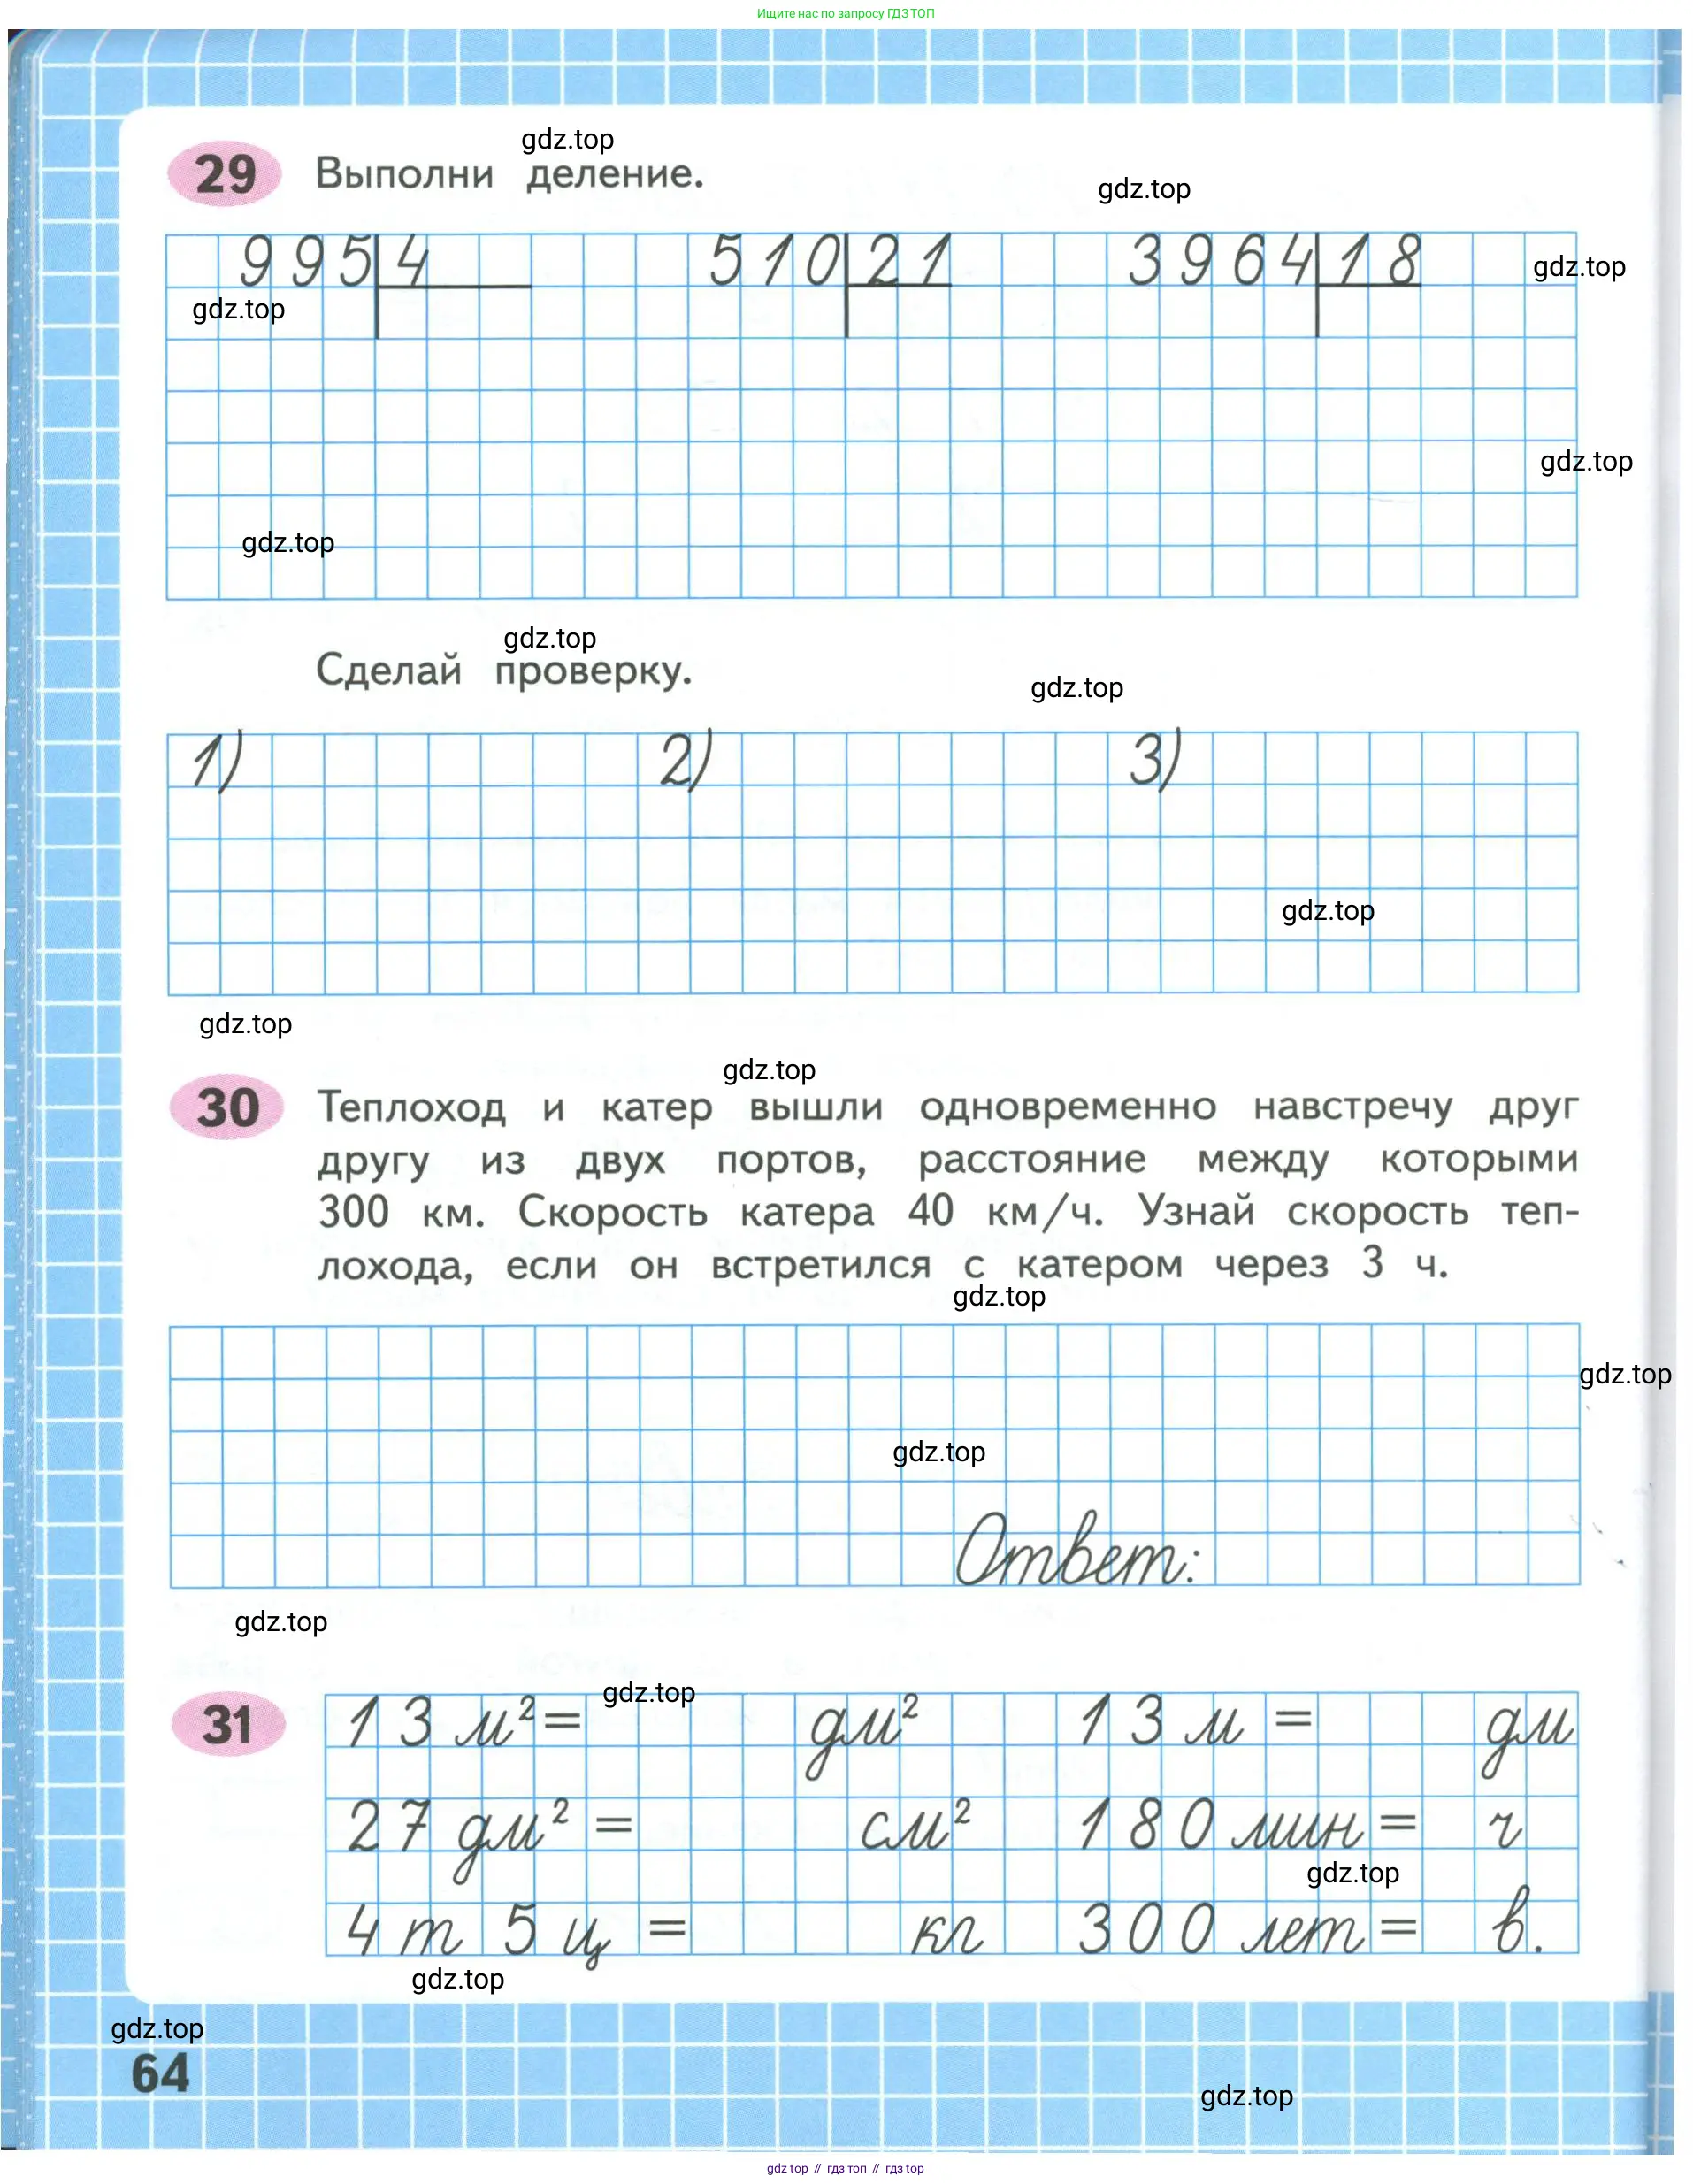 Ищите нас по запросу ГДЗ ТОП
gdz.top
29 Выполни деление.
gdz.top
995 4 510 21 3964 18
gdz.top
gdz.top
gdz.top
gdz.top
gdz.top
Сделай проверку.
gdz.top
1) 2) 3)
gdz.top
gdz.top
gdz.top
30 Теплоход и катер вышли одновременно навстречу друг
другу из двух портов, расстояние между которыми
300 км. Скорость катера 40 км/ч. Узнай скорость теп-
лохода, если он встретился с катером через 3 ч.
gdz.top
gdz.top
gdz.top
Ответ:
gdz.top
gdz.top
31 13 м²= дм² 13 м = дм
27 дм² = см² 180 мин = ч
gdz.top
4 т 5 ц = кг 300 лет = в.
gdz.top
gdz.top
64
gdz.top
gdz top // гдз топ // гдз top